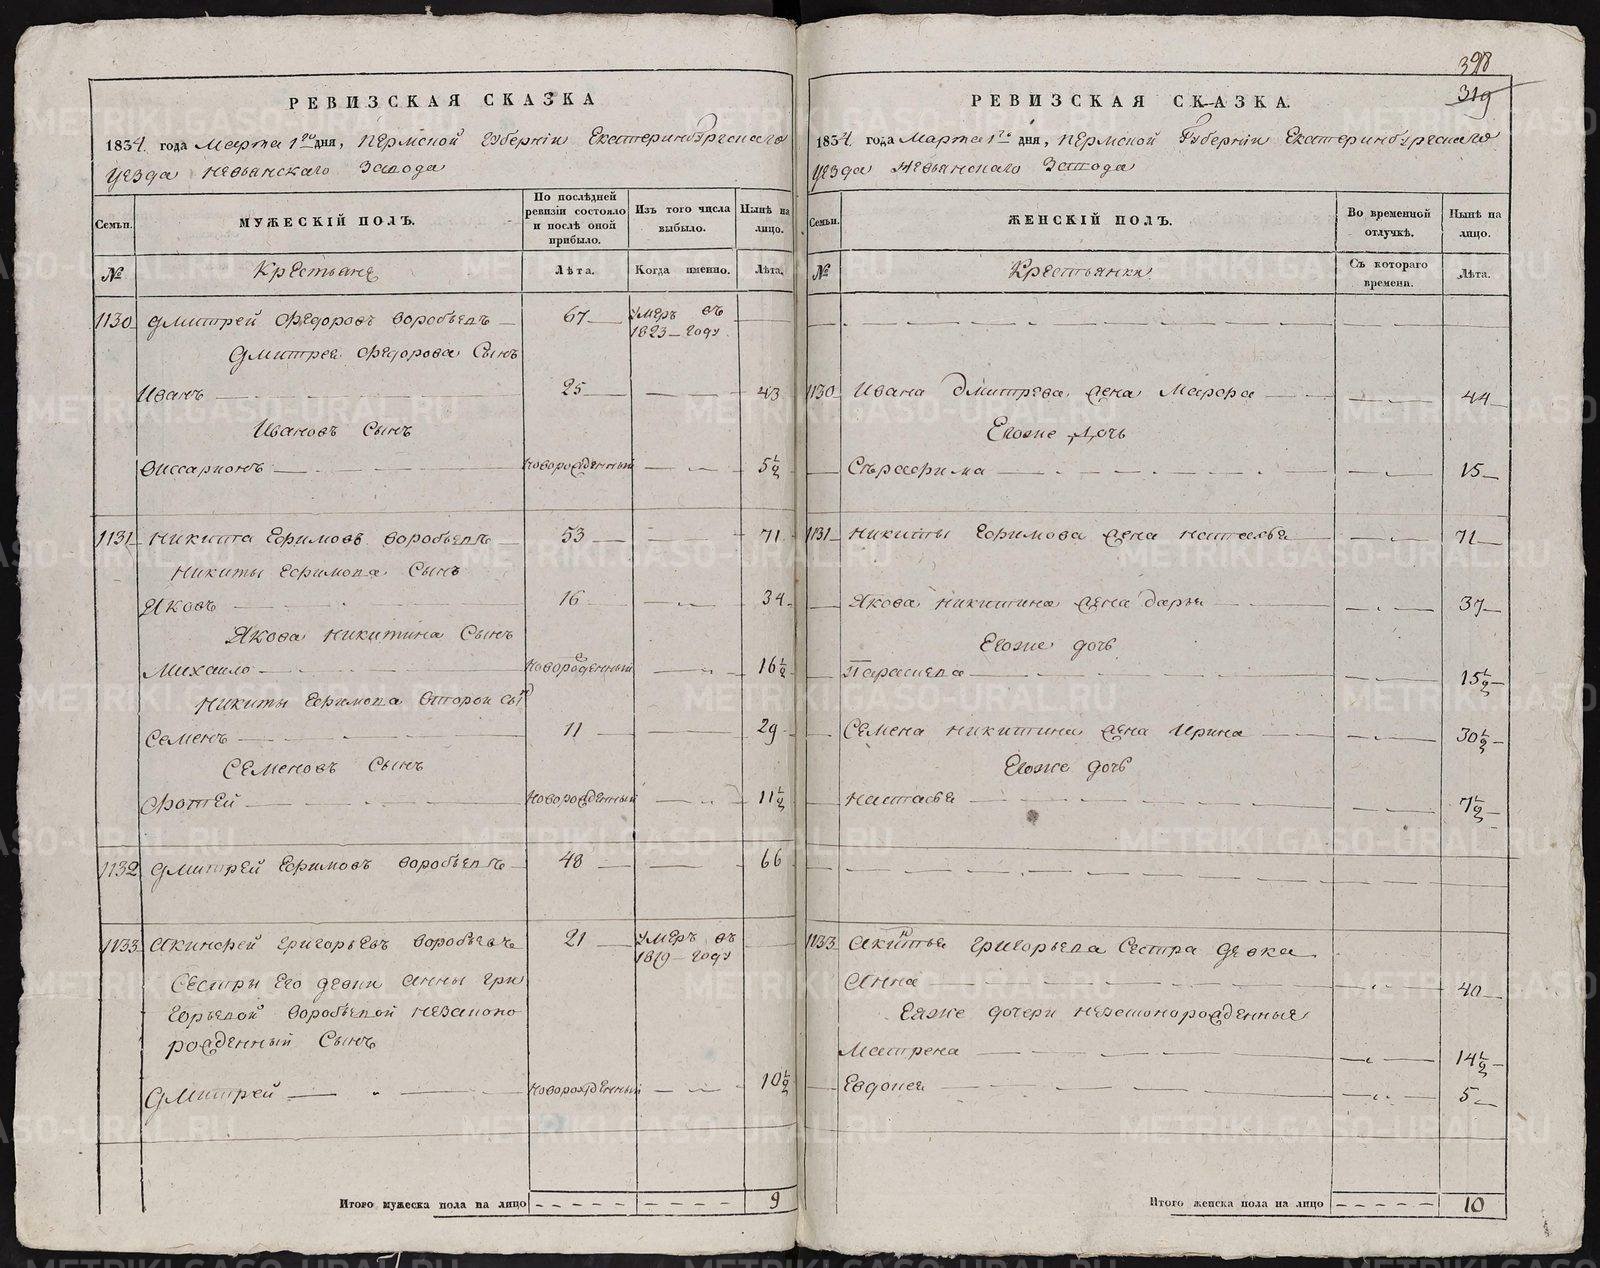 398
319
РЕВИЗСКАЯ СКАЗКА
1834 года Марта 1го дня, Пермской Губернiи Екатеринбургскаго
уезда Невьянскаго Завода
Семьи.
МУЖЕСКIЙ ПОЛЪ.
По послѣдней ревизiи состояло и послѣ оной прибыло.
Изъ того числа выбыло.
Нынѣ на лицо.
№
Крестьяне
Лѣта.
Когда именно.
Лѣта.
1130 Дмитрей Федоровъ Воробьевъ — 67 — Умеръ въ 1823 — году
Дмитрея Федорова Сынъ
Иванъ — 25 — 43
Ивановъ Сынъ
Виссарионъ — новорожденный — 5½
1131 Никита Ефимовъ Воробьевъ — 53 — 71
Никиты Ефимова Сынъ
Яковъ — 16 — 34
Якова Никитина Сынъ
Михаило — новорожденный — 16½
Никиты Ефимова второй сынъ
Семенъ — 11 — 29
Семеновъ Сынъ
Фотей — новорожденный — 11½
1132 Дмитрей Ефимовъ Воробьевъ — 48 — 66
1133 Акинфей Григорьевъ Воробьевъ 21 — Умеръ въ 1819 — году
Сестры Его девки Анны Гри
горьевой Воробьевой незаконо
рожденный Сынъ
Дмитрей — новорожденный — 10½
Итого мужеска пола на лицо 9
РЕВИЗСКАЯ СКАЗКА.
1834 года Марта 1го дня, Пермской Губернiи Екатеринбургскаго
уезда Невьянскаго Завода
Семьи.
ЖЕНСКIЙ ПОЛЪ.
Во временной отлучкѣ.
Нынѣ на лицо.
№
Крестьянки
Съ котораго времени.
Лѣта.
1130 Ивана Дмитрева жена Марфа — 44
Егоже дочь
Сърафима — 15
1131 Никиты Ефимова жена Наталья — 71
Якова Никитина жена Дарья — 37
Егоже дочь
Парасщева — 15½
Семена Никитина жена Ирина — 30½
Егоже дочь
Настасья — 7½
1133 Акинтья Григорьева Сестра девка
Анна — 40
Еяже дочери незаконорожденные
Матрена — 14½
Евдокея — 5
Итого женска пола на лицо 10
METRIKI.GASO-URAL.RU